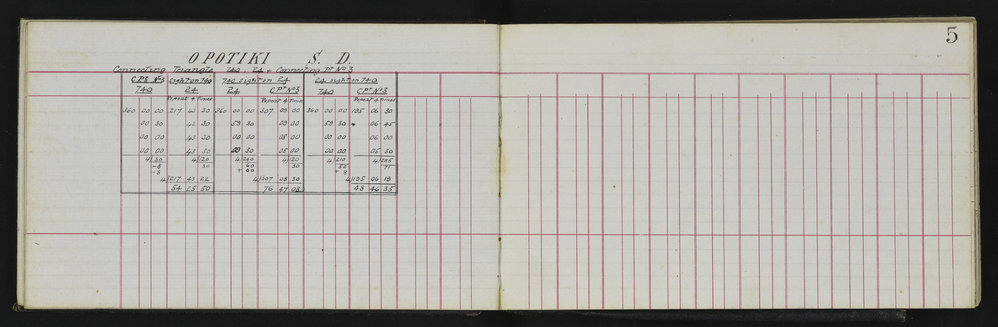 5
OPOTIKI S. D.
Connecting Triangle 740, 24 & Connecting Pt No 3
CPt No3 sight on 740 740 sight on 24 24 sight on 740
740 24 24 CPt No3 740 CPt No3
Repeat 4 Times Repeat 4 Time Repeat 4 Times
360 00 00 217 43 30 360 00 00 307 09 00 360 00 00 195 06 30
00 30 43 30 59 30 09 00 59 30 06 45
00 00 43 30 00 00 08 00 00 00 06 00
00 00 43 30 00 30 08 00 00 00 05 30
4|30 4|120 4|240 4|120 4|210 4|285
-8 30 60 30 52 71
-8 + 00 + 8
4|217 43 22 4|307 08 30 4|195 06 19
54 25 50 76 47 08 48 46 35